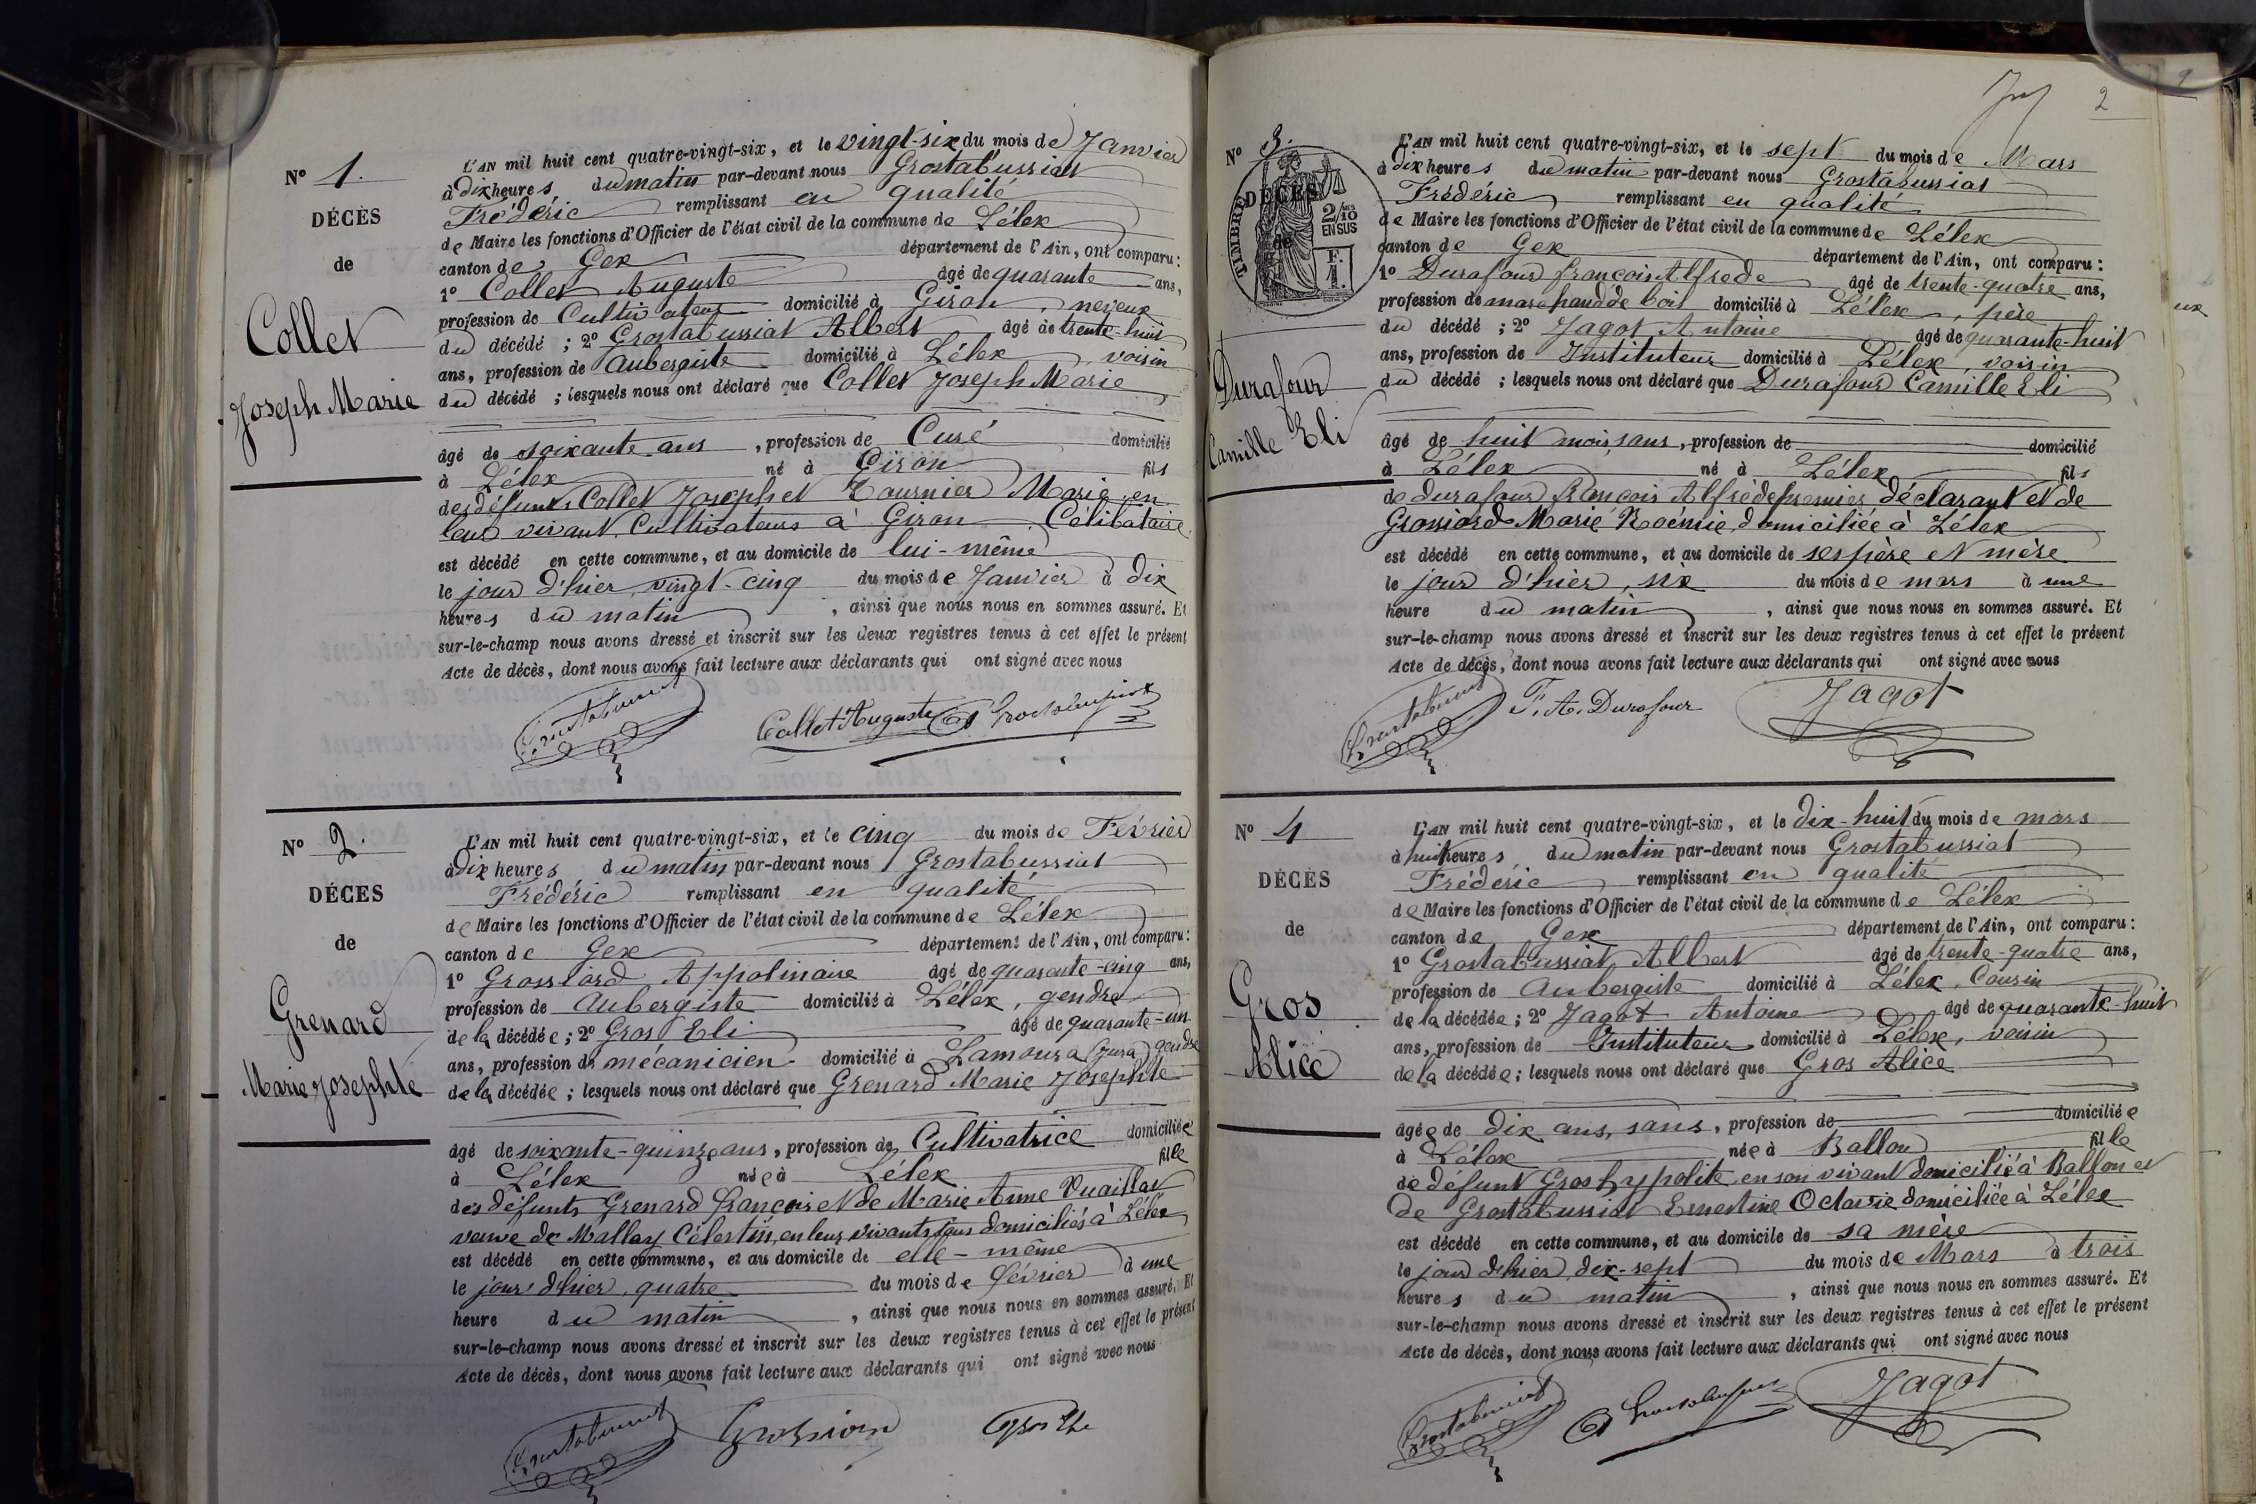 Nº 1.
DÉCÈS
de
Collet
Joseph Marie
L'AN mil huit cent quatre-vingt-six, et le vingt-six du mois de Janvier
à dix heures du matin par-devant nous Grostabussiat
Frédéric remplissant en qualité
de Maire les fonctions d'Officier de l'état civil de la commune de Lélex
canton de Gex département de l'Ain, ont comparu :
1º Collet Auguste âgé de quarante ans,
profession de Cultivateur domicilié à Giron, neveux
du décédé ; 2º Grostabussiat Albert âgé de trente-huit
ans, profession de Aubergiste domicilié à Lélex, voisin
du décédé ; lesquels nous ont déclaré que Collet Joseph Marie
âgé de soixante ans, profession de Curé domicilié
à Lélex né à Giron fils
des défunts Collet Joseph et Tournier Marie, en
leur vivant Cultivateurs à Giron. Célibataire
est décédé en cette commune, et au domicile de lui-même
le jour d'hier, vingt-cinq du mois de Janvier à dix
heures du matin, ainsi que nous nous en sommes assuré. Et
sur-le-champ nous avons dressé et inscrit sur les deux registres tenus à cet effet le présent
Acte de décès, dont nous avons fait lecture aux déclarants qui ont signé avec nous
Grostabussiat Collet Auguste A Grostabussiat
Nº 2.
DÉCES
de
Grenard
Marie Josephte
L'AN mil huit cent quatre-vingt-six, et le cinq du mois de Février
à dix heures du matin par-devant nous Grostabussiat
Frédéric remplissant en qualité
de Maire les fonctions d'Officier de l'état civil de la commune de Lélex
canton de Gex département de l'Ain, ont comparu :
1º Grossiord Appolinaire âgé de quarante-cinq ans,
profession de Aubergiste domicilié à Lélex, gendre
de la décédée ; 2º Gros Eli âgé de quarante-un
ans, profession de mécanicien domicilié à Lamoura (Jura) gendre
de la décédée ; lesquels nous ont déclaré que Grenard Marie Josephte
âgé de soixante-quinze ans, profession de Cultivatrice domiciliée
à Lélex née à Lélex fille
des défunts Grenard françois et de Marie Anne Vuaillat
veuve de Mallay Célestin, en leur vivants tous domiciliés à Lélex
est décédé en cette commune, et au domicile de elle-même
le jour d'hier, quatre du mois de février à une
heure du matin, ainsi que nous nous en sommes assuré. Et
sur-le-champ nous avons dressé et inscrit sur les deux registres tenus à cet effet le présent
Acte de décès, dont nous avons fait lecture aux déclarants qui ont signé avec nous
Grostabussiat Grossiord
2
Nº 3.
TIMBRE
DÉCÈS
de
2/10
EN SUS
F.
1.
Durafour
Camille Eli
L'AN mil huit cent quatre-vingt-six, et le sept du mois de Mars
à dix heures du matin par-devant nous Grostabussiat
Frédéric remplissant en qualité
de Maire les fonctions d'Officier de l'état civil de la commune de Lélex
canton de Gex département de l'Ain, ont comparu :
1º Durafour françois Alfrede âgé de trente-quatre ans,
profession de marchand de bois domicilié à Lélex, père
du décédé ; 2º Jagot Antoine âgé de quarante-huit
ans, profession de Instituteur domicilié à Lélex, voisin
du décédé ; lesquels nous ont déclaré que Durafour Camille Eli
âgé de huit mois, sans, profession de domicilié
à Lélex né à Lélex fils
de durafour françois Alfrède premier déclarant et de
Grossiord Marie Noémie domiciliée à Lélex
est décédé en cette commune, et au domicile de ses père et mère
le jour d'hier, six du mois de mars à une
heure du matin, ainsi que nous nous en sommes assuré. Et
sur-le-champ nous avons dressé et inscrit sur les deux registres tenus à cet effet le présent
Acte de décès, dont nous avons fait lecture aux déclarants qui ont signé avec nous
Grostabussiat F. A. Durafour Jagot
Nº 4
DÉCÈS
de
Gros
Alice
L'AN mil huit cent quatre-vingt-six, et le dix-huit du mois de mars
à huit heures du matin par-devant nous Grostabussiat
Frédéric remplissant en qualité
de Maire les fonctions d'Officier de l'état civil de la commune de Lélex
canton de Gex département de l'Ain, ont comparu :
1º Grostabussiat Albert âgé de trente-quatre ans,
profession de Aubergiste domicilié à Lélex, Cousin
de la décédée ; 2º Jagot Antoine âgé de quarante-huit
ans, profession de Instituteur domicilié à Lélex, voisin
de la décédée ; lesquels nous ont déclaré que Gros Alice
âgée de dix ans, sans, profession de domiciliée
à Lélex née à Ballon fille
de défunt Gros hyppolite en son vivant domicilié à Ballon et
de Grostabussiat Ernestine Octavie domiciliée à Lélex
est décédé en cette commune, et au domicile de sa mère
le jour d'hier, dix-sept du mois de Mars à trois
heures du matin, ainsi que nous nous en sommes assuré. Et
sur-le-champ nous avons dressé et inscrit sur les deux registres tenus à cet effet le présent
Acte de décès, dont nous avons fait lecture aux déclarants qui ont signé avec nous
Grostabussiat A Grostabussiat Jagot